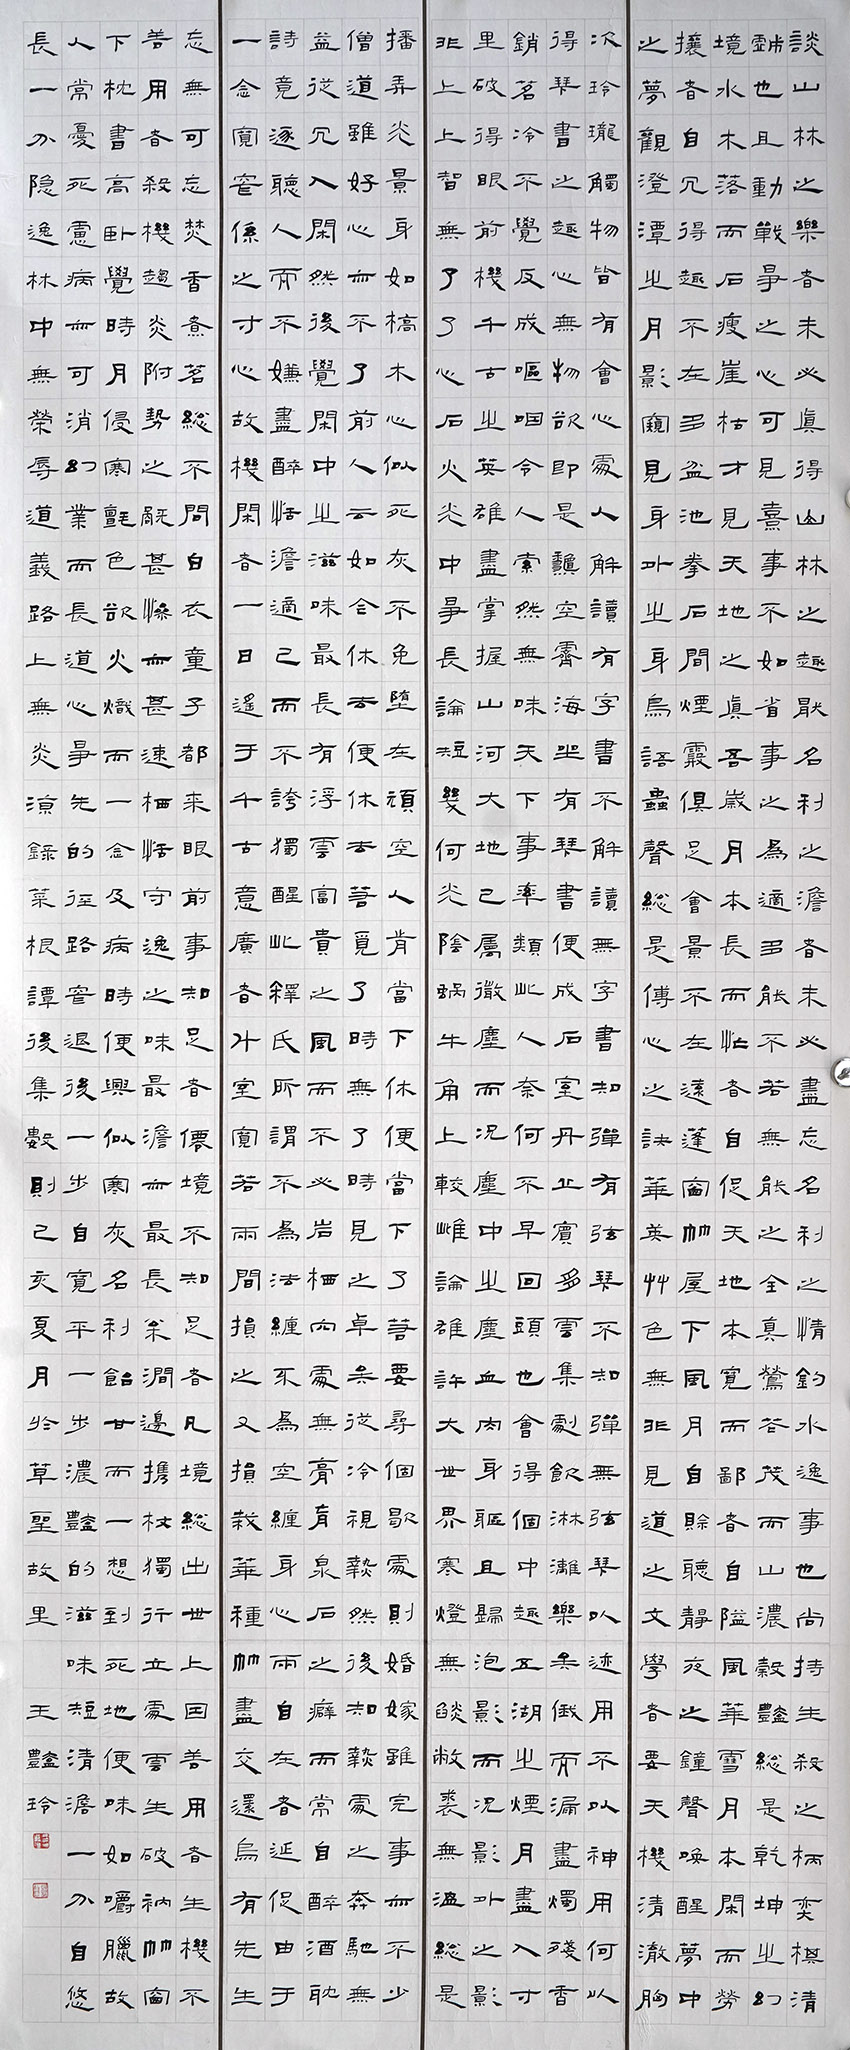 談山林之樂者未必真得山林之趣厭名利之澹者未必盡忘名利之情釣水逸事也尚持生殺之柄奕棋清
戲也且動戰爭之心可見熹事不如省事之為適多能不若無能之全真鶯花茂而山濃穀豔総是乾坤之幻
境水木落而石瘦崖枯才見天地之真吾歲月本長而忙者自促天地本寬而鄙者自隘風華雪月本閑而勞
攘者自冗得趣不在多盆池拳石間煙霞俱足會景不在遠蓬窗竹屋下風月自賒聽靜夜之鐘聲喚醒夢中
之夢觀澄潭之月影窺見身外之身鳥語蟲聲総是傳心之訣華英艸色無非見道之文學者要天機清澈胸
次玲瓏觸物皆有會心處人解讀有字書不解讀無字書知彈有弦琴不知彈無弦琴以迹用不以神用何以
得琴書之趣心無物欲即是靝空霽海坐有琴書便成石室丹丘賓多雲集劇飲淋灕樂矣俄而漏盡燭殘香
銷茗冷不覺反成嘔咽令人索然無味天下事率類此人奈何不早回頭也會得個中趣五湖之煙月盡入寸
里破得眼前機千古之英雄盡掌握山河大地已屬微塵而況塵中之塵血肉身軀且歸泡影而況影外之影
非上上智無了了心石火光中爭長論短幾何光陰蝸牛角上較雌論雄許大世界寒燈無焰敝裘無溫総是
播弄光景身如槁木心似死灰不免墮在頑空人肯當下休便當下了若要尋個歇處則婚嫁雖完事亦不少
僧道雖好心亦不了前人云如今休去便休去若覓了時無了時見之卓矣從冷視熱然後知熱處之奔馳無
益從冗入閑然後覺閑中之滋味最長有浮雲富貴之風而不必岩栖穴處無膏肓泉石之癖而常自醉酒耽
詩竟逐聽人而不嫌盡醉恬澹適己而不誇獨醒此釋氏所謂不為法纏不為空纏身心兩自在者延促由于
一念寬窄係之寸心故機閑者一日遙于千古意廣者斗室寬若兩間損之又損栽華種竹盡交還烏有先生
忘無可忘焚香煮茗総不問白衣童子都來眼前事知足者僊境不知足者凡境総出世上因善用者生機不
善用者殺機趨炎附勢之禍甚慘亦甚速栖恬守逸之味最澹亦最長矣澗邊攜杖獨行立處雲生破衲竹窗
下枕書高臥覺時月侵寒氈色欲火熾而一念及病時便興似寒灰名利飴甘而一想到死地便味如嚼臘故
人常憂死慮病亦可消幻業而長道心爭先的徑路窄退後一步自寬平一步濃豔的滋味短清澹一分自悠
長一分隐逸林中無榮辱道義路上無炎涼錄菜根譚後集數則己亥夏月於草聖故里 王豔玲